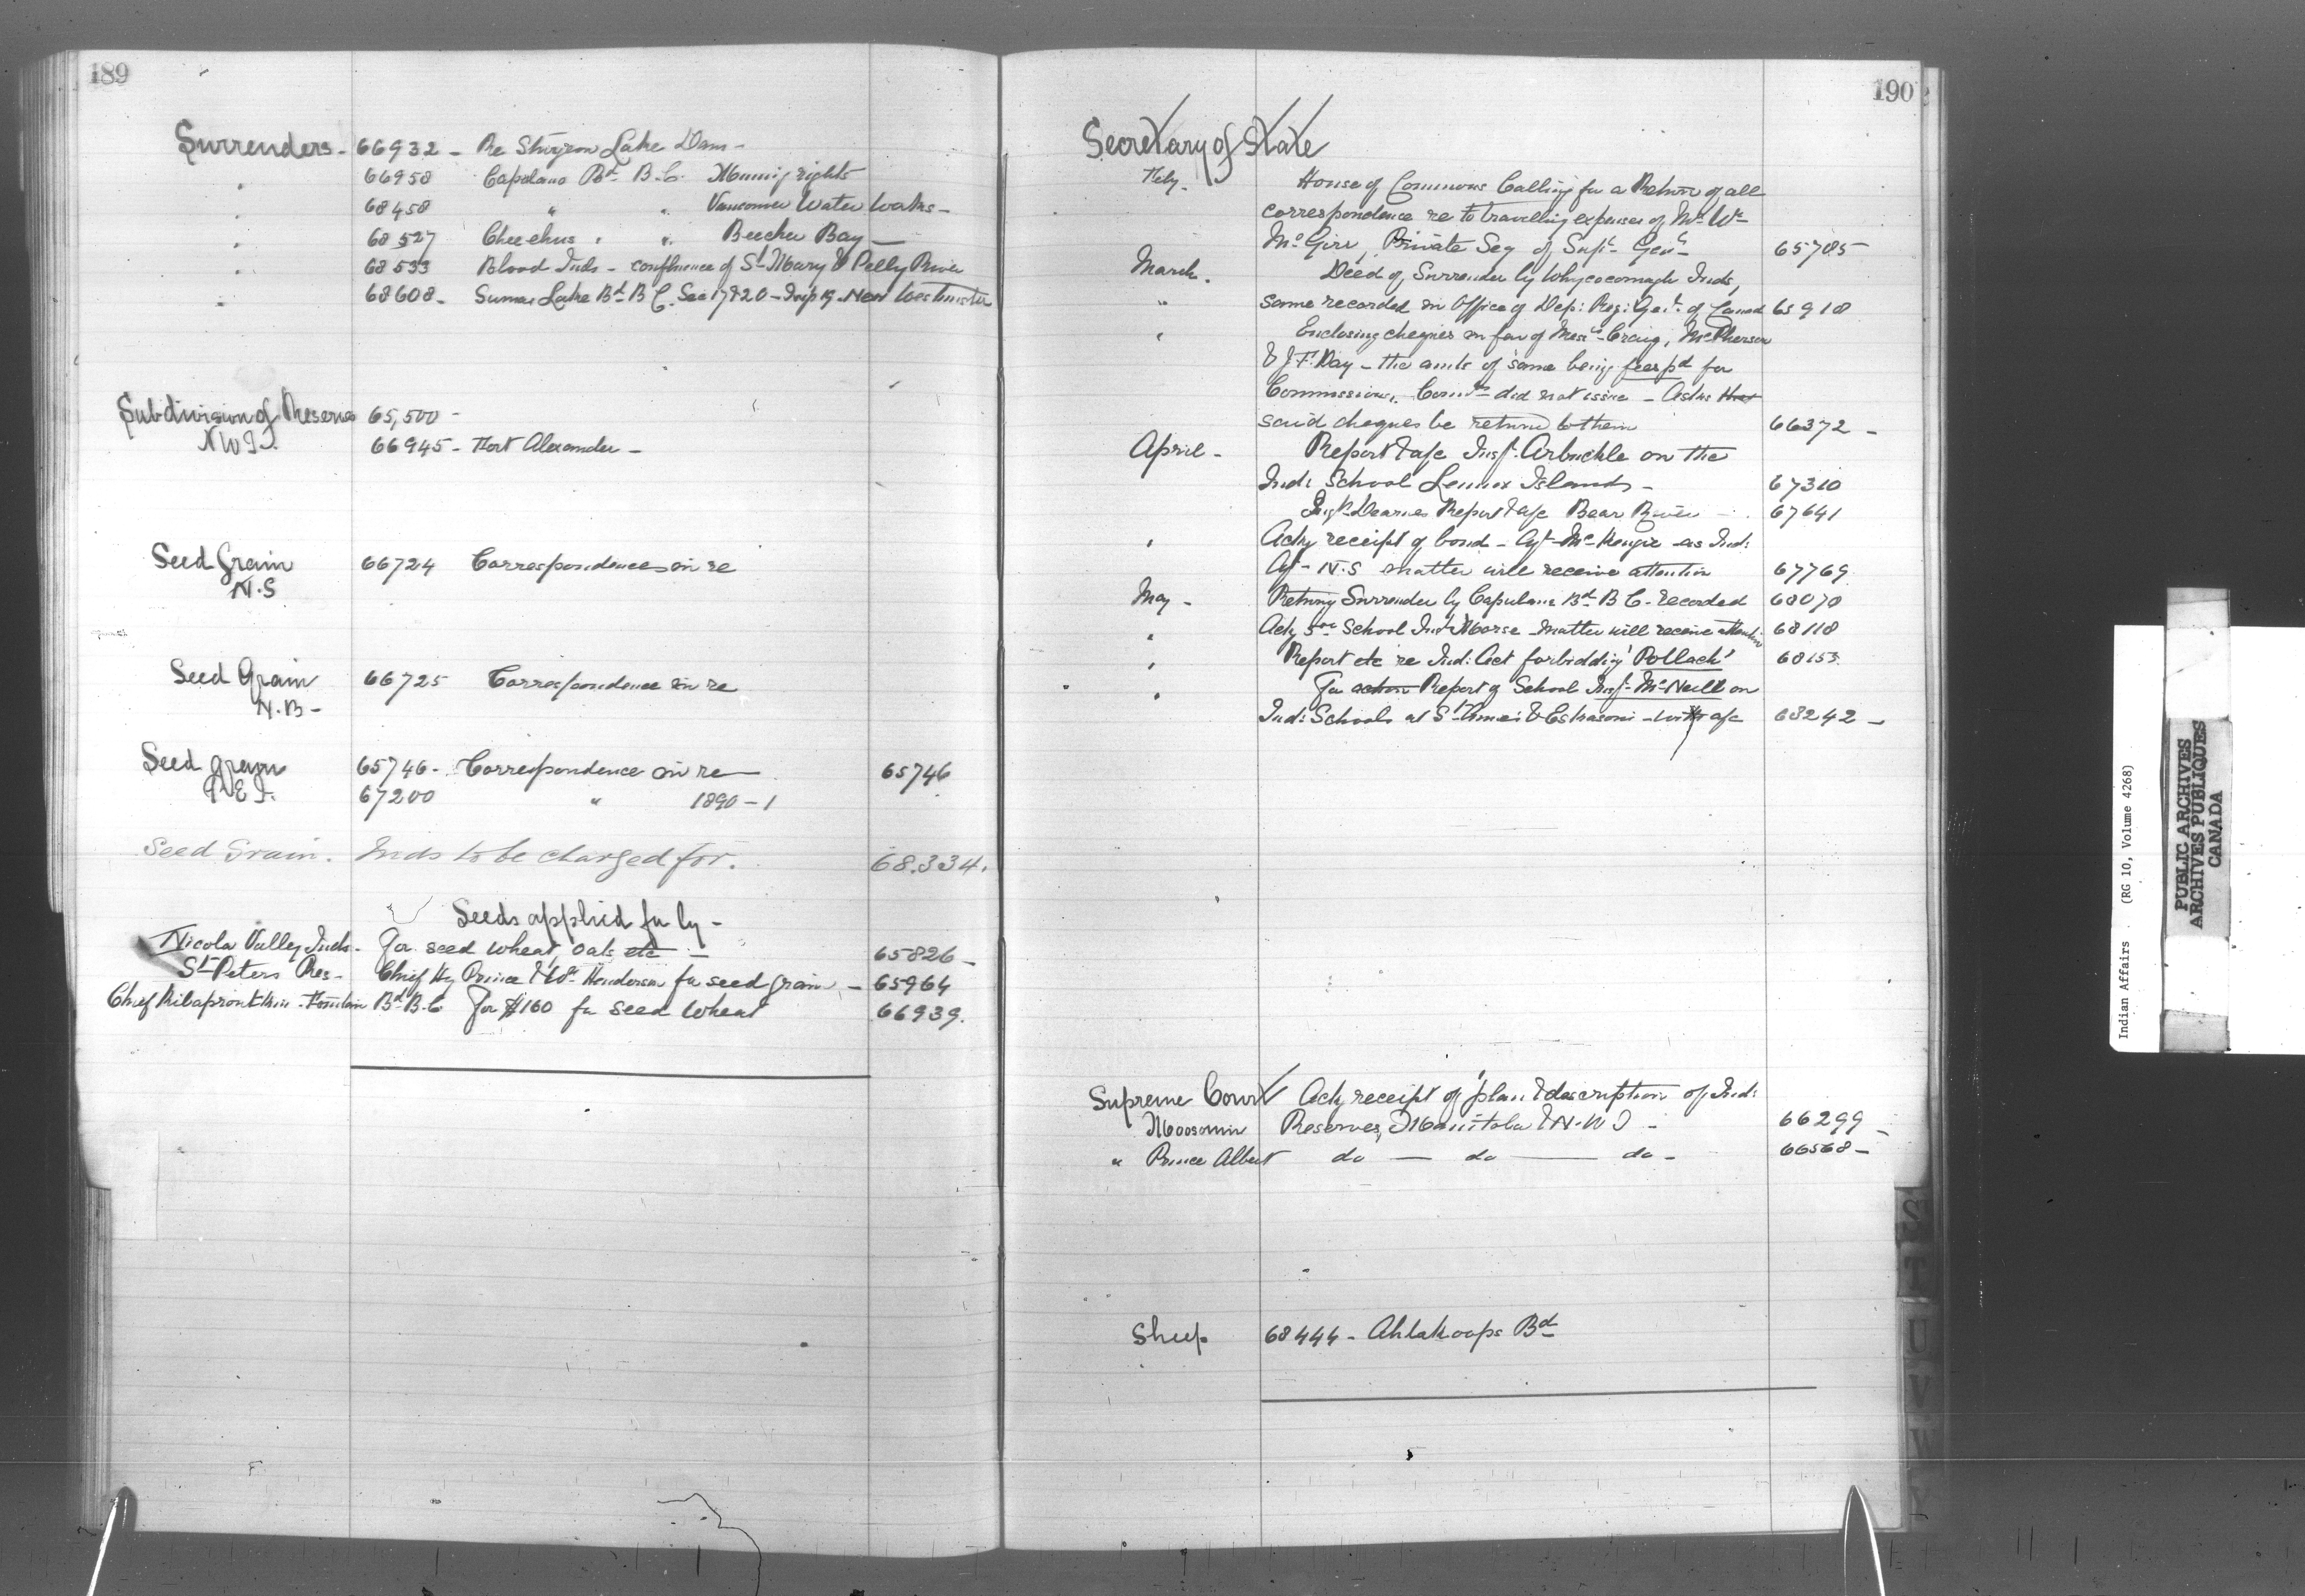 189
Surrenders - 66932 - Re Sturgeon Lake Dam -
" 66958 Capelano Bd B.C. Mining rights
" 68458 " " Vancouver Water Works -
" 68527 Cheeehus " " Beecher Bay -
" 68533 Blood Inds - confluence of St Mary & Pelly River
" 68608 - Sumas Lake Bd B C. Sec 17 & 20 - Twp 19 - New Westminster
Subdivision of Reserves 65,500 -
N W T. 66945 - Fort Alexander -
Seed Grain 66724 Correspondence in re
N.S
Seed Grain 66725 Correspondence in re
N.B -
Seed grain 65746 - Correspondence in re 65746
P.E.I. 67200 " 1890 - 1
Seed Grain. Inds to be charged for. 68.334.
Seeds applied for by -
Nicola Valley Inds - For seed wheat, oats etc - 65826 -
St Peters Res - Chief Hy Prince & Wm Henderson for seed grain - 65964
Chief - Fountain Bd B.C For $160 for seed wheat 66939.
190
Secretary of State
Feby. House of Commons Calling for a Return of all
correspondence re to travelling expenses of Mr Wm
McGirr, Private Secy of Supt Genl 65785
March. Deed of Surrender by Whycocomagh Inds,
" same recorded in Office of Dep: Reg: Genl of Canad 65918
" Enclosing cheques in fav of Messrs Craig, McPherson
& J F. Day - the amts of same being fees pd for
Commissions. Comns did not issue - Asks that
said cheques be returned to them 66372 -
April - Report & a/c Insp. Arbuckle on the
Ind: School Lennox Islands - 67310
Dearnes Report & a/c Bear River - 67641
" Ackg receipt of bond - Agt McKenzie as Ind:
Agt - N.S matter will receive attention 67769
May - Retnng Surrender by Capelano Bd B C - recorded 68078
" Ackg School Morse - matter will receive attention 68118
" Report etc re Ind: Act forbidding 'Potlach' 68153.
" For action Report of School Insp. McNeill on
Ind: Schools at St Annes & Eskasoni - with a/c 68242 -
Supreme Court Ackg receipt of plan & description of Ind:
Moosomin Reserves, Manitoba & N.W T - 66299 -
" Prince Albert do — do — do - 66568 -
Sheep 68444 - Ahtahkoops Bd
S
T
U
V
W
Y
Indian Affairs (RG 10, Volume 4268)
PUBLIC ARCHIVES
ARCHIVES PUBLIQUES
CANADA